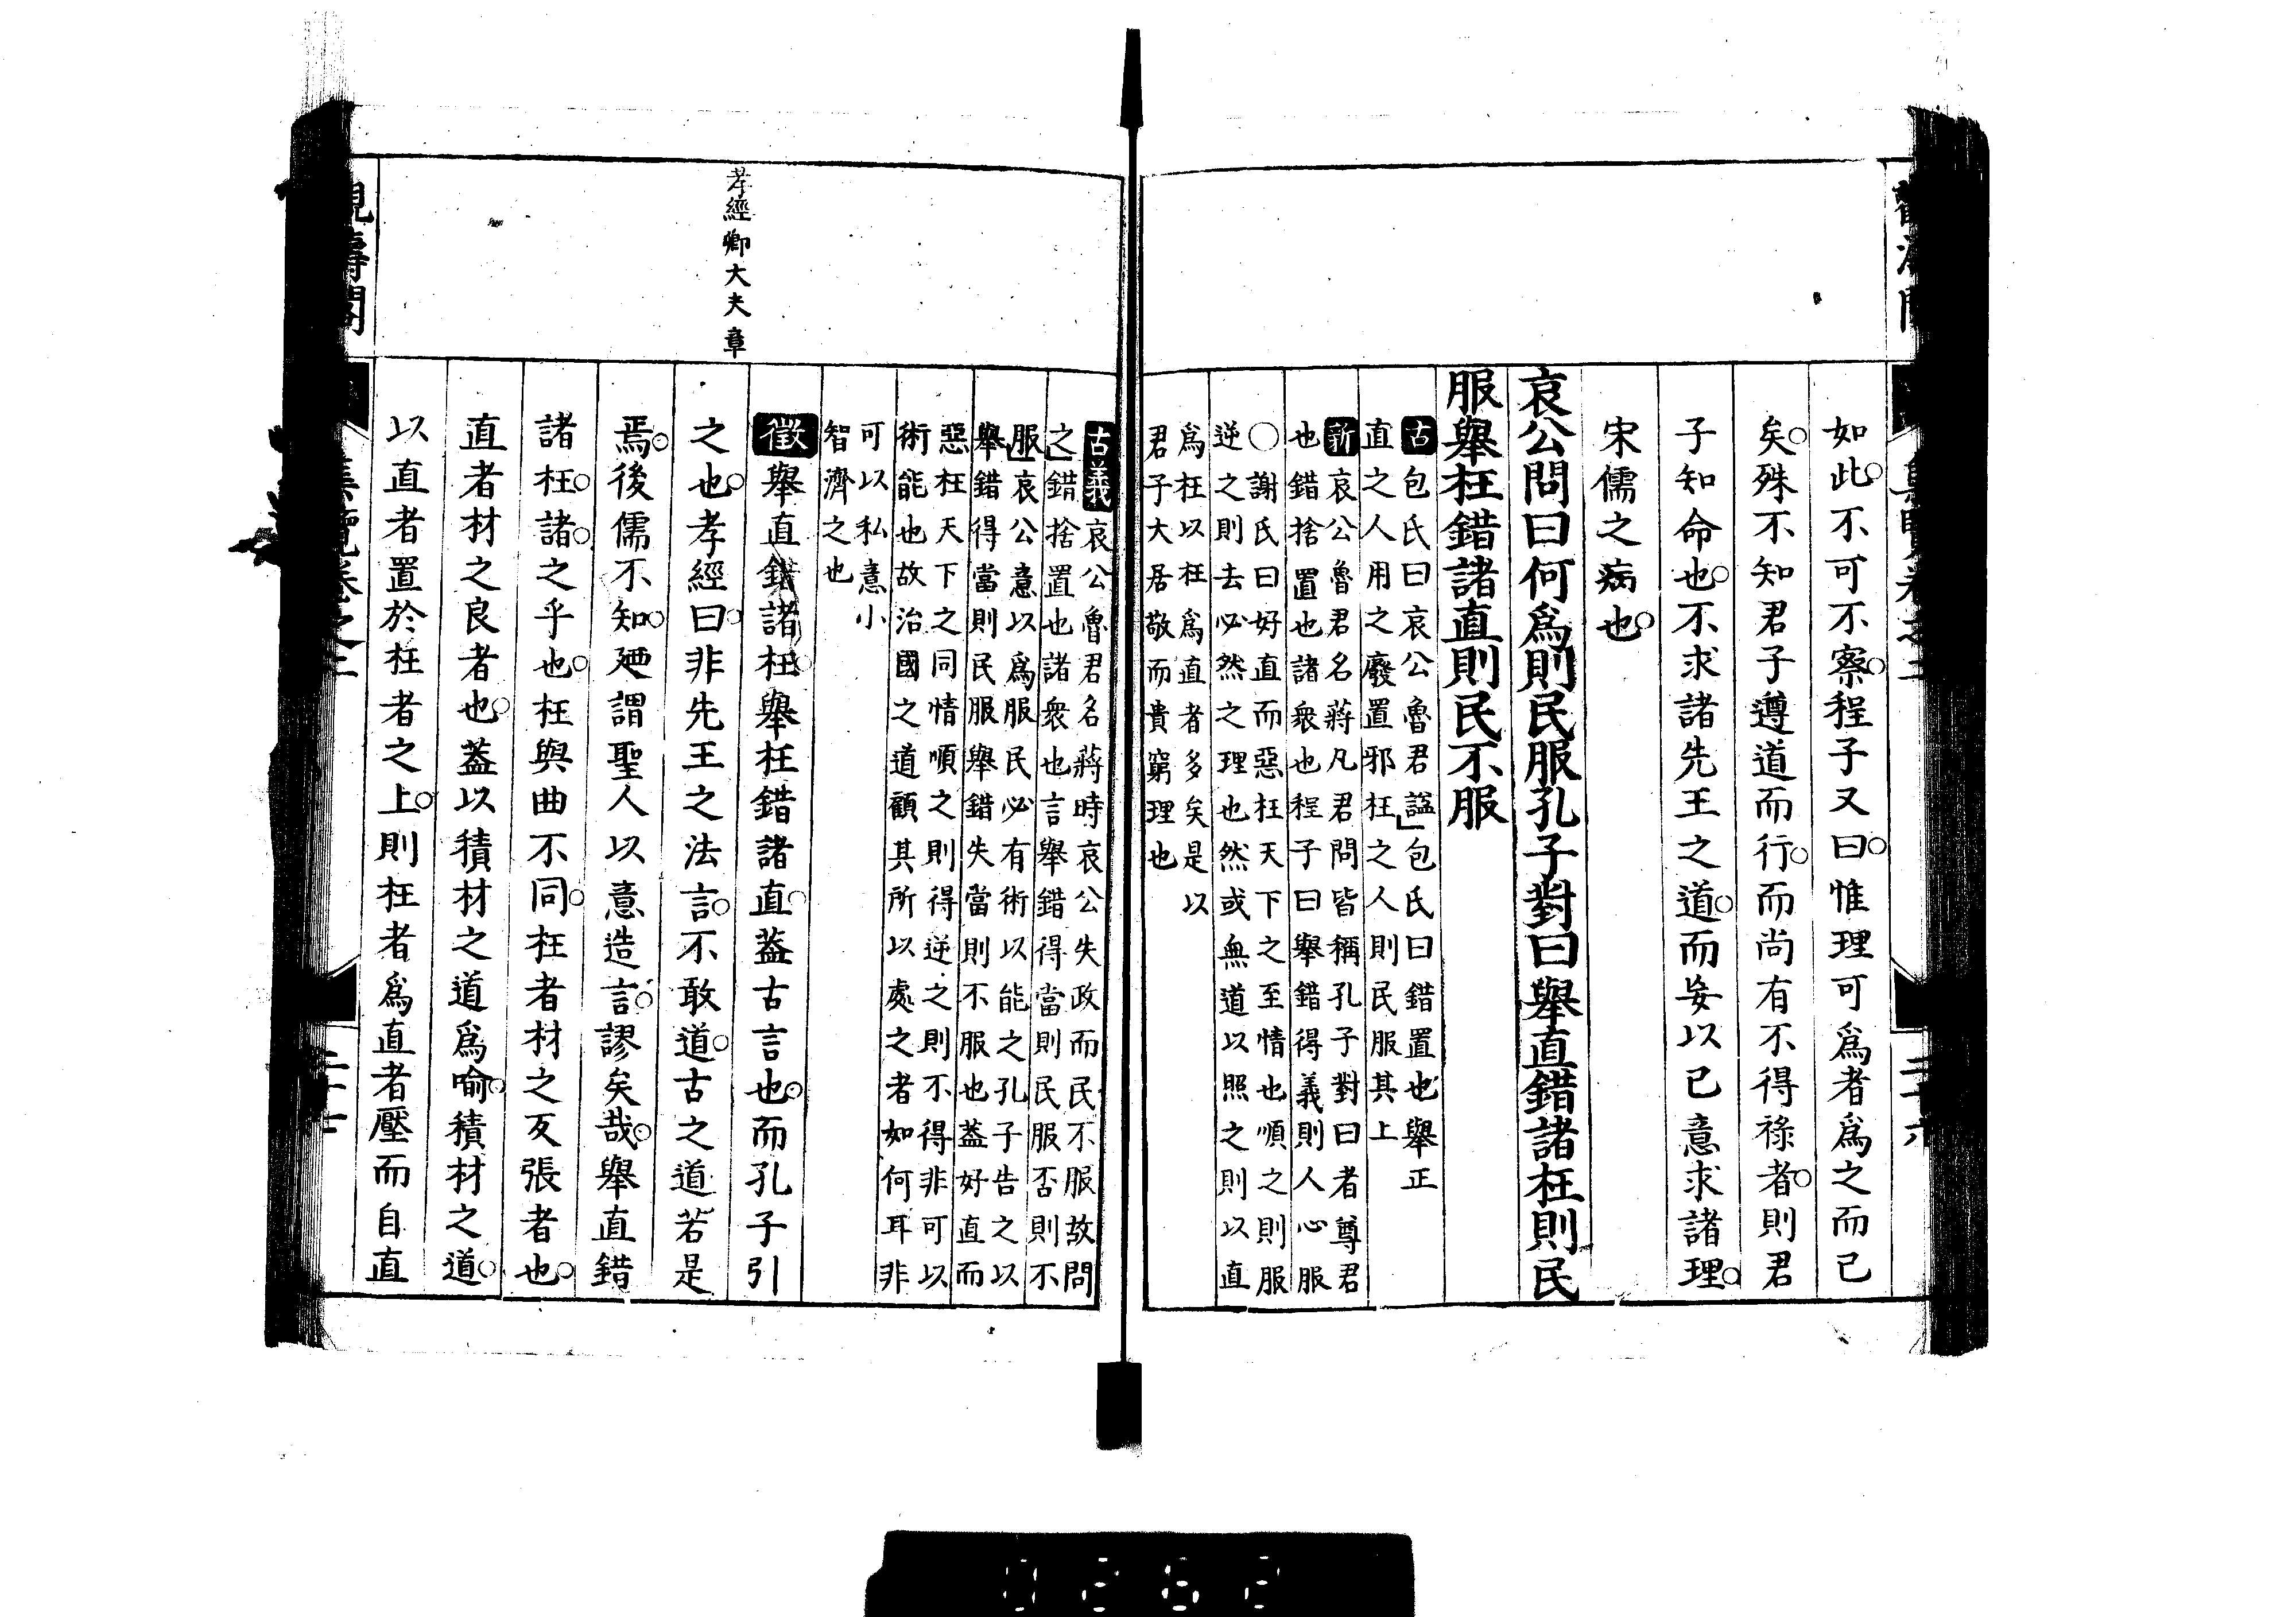 如此不可不察程子又曰惟理可爲者爲之而已
矣殊不知君子遵道而行而尚有不得祿者則君
子知命也不求諸先王之道而妄以已意求諸理
宋儒之病也
哀公問曰何爲則民服孔子對曰舉直錯諸枉則民
服舉枉錯諸直則民不服
古包氏曰哀公魯君謚」包氏曰錯置也舉正
直之人用之廢置邪枉之人則民服其上
新哀公魯君名蔣凡君問皆稱孔子對曰者尊君
也錯捨置也諸衆也程子曰舉錯得義則人心服
○謝氏曰好直而惡枉天下之至情也順之則服
逆之則去必然之理也然或無道以照之則以直
爲枉以枉爲直者多矣是以
君子大居敬而貴窮理也
古義哀公魯君名蔣時哀公失政而民不服故問
之」錯捨置也諸衆也言舉錯得當則民服否則不
服」哀公意以爲服民必有術以能之孔子告之以
舉錯得當則民服舉錯失當則不服也蓋好直而
惡枉天下之同情順之則得逆之則不得非可以
術能也故治國之道顧其所以處之者如何耳非
可以私意小
智濟之也
徵舉直錯諸枉舉枉錯諸直蓋古言也而孔子引
之也孝經曰非先王之法言不敢道古之道若是
焉後儒不知廼謂聖人以意造言謬矣哉舉直錯
諸枉諸之乎也枉與曲不同枉者材之反張者也
直者材之良者也蓋以積材之道爲喻積材之道
以直者置於枉者之上則枉者爲直者壓而自直
孝經卿大夫章
集覽卷之二
二十六
0262